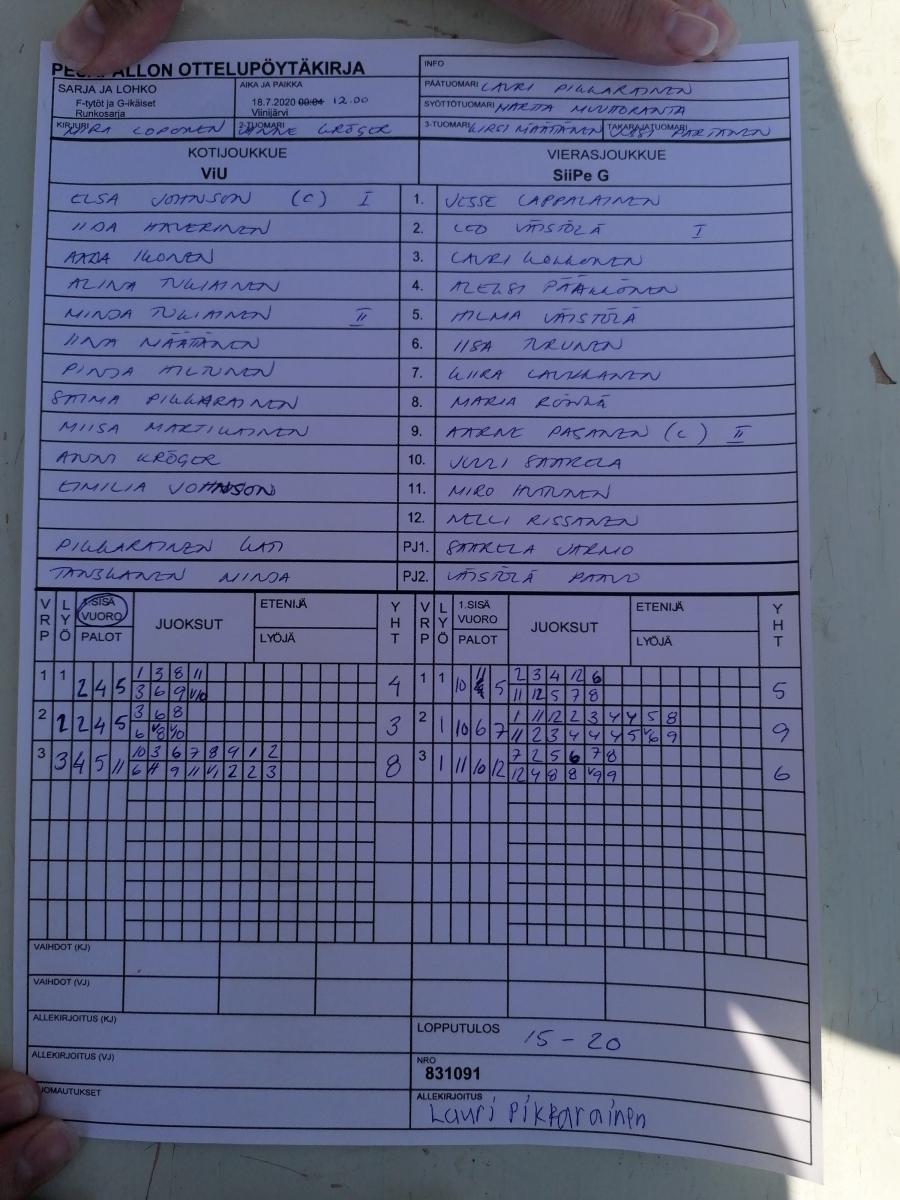 PESÄPALLON OTTELUPÖYTÄKIRJA
INFO
SARJA JA LOHKO
F-tytöt ja G-ikäiset
Runkosarja
AIKA JA PAIKKA
18.7.2020 00:04 12.00
Viinijärvi
PÄÄTUOMARI LAURI PIKKARAINEN
SYÖTTÖTUOMARI MARTTA MUUTORANTA
KIRJURI LOPONEN
2-TUOMARI ANNE KRÖGER
3-TUOMARI KIRSI MÄÄTÄNEN
TAKARAJATUOMARI JUSSI PARTANEN
KOTIJOUKKUE
ViU
VIERASJOUKKUE
SiiPe G
ELSA JOHNSON (C) I 1. JESSE LAPPALAINEN
IIDA HAVERINEN 2. LEO VÄISTÖLÄ I
AADA IKONEN 3. LAURI KOKKONEN
ALINA TUKIAINEN 4. ALEKSI PÄÄKKÖNEN
MINJA TUKIAINEN II 5. HILMA VÄISTÖLÄ
IINA MÄÄTÄNEN 6. IISA TURUNEN
PINJA HILTUNEN 7. KIIRA LAUKKANEN
SAIMA PIKKARAINEN 8. MARIA RÖNKÄ
MIISA MARTIKAINEN 9. AARNE PASANEN (C) II
ANNI KRÖGER 10. JULI SAARELA
EIMILIA JOHNSON 11. MIRO HUTUNEN
12. NELLI RISSANEN
PIKKARAINEN KATI PJ1. SAARELA JARMO
TANSKANEN MINJA PJ2. VÄISTÖLÄ PAAVO
VRP LYÖ 1.SISÄ VUORO PALOT JUOKSUT ETENIJÄ LYÖJÄ YHT VRP LYÖ 1.SISÄ VUORO PALOT JUOKSUT ETENIJÄ LYÖJÄ YHT
1 1 2 4 5 1 3 8 11 4 1 1 10 5 2 3 4 12 6 5
3 6 9 V10 11 12 5 7 8
2 2 2 4 5 3 6 8 3 2 1 10 6 7 1 11 12 2 3 4 4 5 8 9
6 V8 V10 11 2 3 4 4 4 5 V6 9
3 3 4 5 11 10 3 6 7 8 9 1 2 8 3 1 11 10 12 7 2 5 6 7 8 6
6 H 9 11 V1 2 2 3 12 4 8 8 V9 9
VAIHDOT (KJ)
VAIHDOT (VJ)
ALLEKIRJOITUS (KJ)
LOPPUTULOS 15 - 20
ALLEKIRJOITUS (VJ)
NRO
831091
HUOMAUTUKSET
ALLEKIRJOITUS
Lauri Pikkarainen